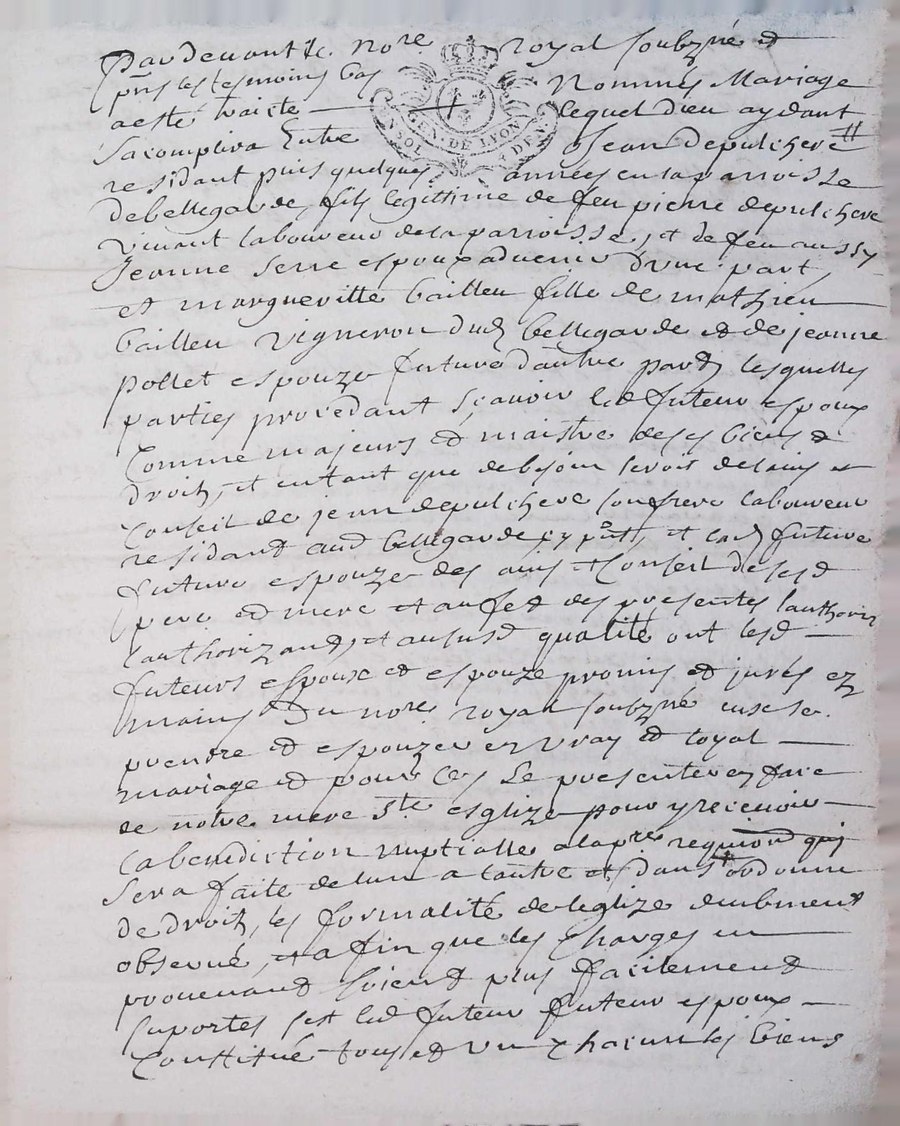 Pardevant le no.re royal soubzné et
pnt les tesmoins bas nommés Mariage
a esté traicté lequel dieu aydant
GEN. DE LYON
SOL
DEN
sacomplira Entre Jean depulchere
residant puis quelques années en la parroisse
de bellegarde, fils legittime de feu pierre depulchere
vivant laboureur de la parroisse, et de feu aussy
Jeanne serre espoux advenir d'une part,
et margueritte bailleu fille de mathieu
bailleu vigneron dud bellegarde et de jeanne
pollet espouze future d'autre part, lesquelles
parties procedant sçavoir led futeur espoux
Comme majeurs et maistre de ses biens et
droits, et entant que de besoin seroit de lavis et
Conseil de jean depulchere son frere laboureur
residant aud bellegarde cy pnt, et lad future
future espouze des avis et Conseil de sesd
pere et mere et au fet des presentes lauthoriz
lauthorizands, et aususd qualité ont lesd
futeurs espoux et espouze promis et jurés ez
mains du nore royal soubzné eux se
prendre et espouzer en vray et loyal
mariage et pour Ce, se presenter en face
de notre mere Ste esglize pour y recevoir
la benediction nuptialle a la pre requion qui
sera faite de lun a lautre et dans lordonn
de droit, les formalité de leglize deubment
observé, et afin que les Charges en
provenand soient plus facilemend
suportes sest led futeur futeur espoux
Constitué tous et un Chacun ses biens